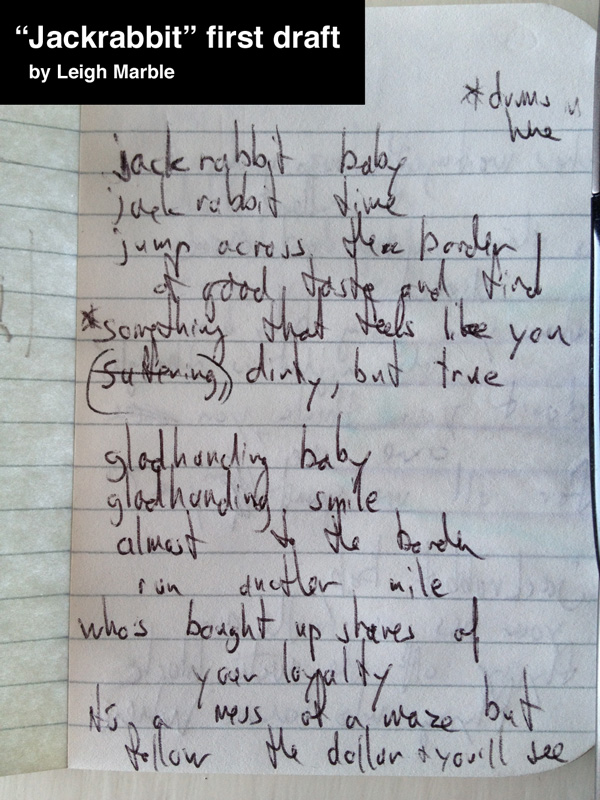 “Jackrabbit” first draft
by Leigh Marble
*drums in
here
jackrabbit baby
jack rabbit time
jump across the border
of good taste and find
*something that feels like you
(suffering) dirty, but true
gladhanding baby
gladhanding smile
almost to the border
run another mile
who's bought up shares of
your loyalty
it's a mess of a maze but
follow the dollar & you'll see